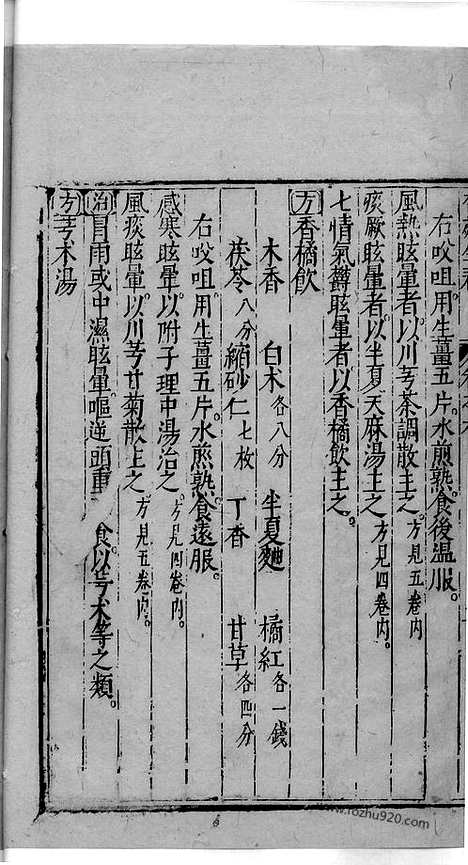 右㕮咀用生薑五片水煎熟食後温服。
風熱眩暈者以川芎茶調散主之。方見五卷内
痰厥眩暈者以半夏天麻湯主之方見四卷内。
七情氣欝眩暈者以香橘飲主之。
方香橘飲
木香 白木各八分 半夏麯 橘紅各一錢
茯苓八分 縮砂仁七枚 丁香 甘草各四分
右㕮咀用生薑五片水煎熟食遠服。
感寒眩暈以附子理中湯治之方見四卷内。
風痰眩暈以川芎甘菊散主之方見五卷内。
治冒雨或中濕眩暈嘔逆頭重 食。以芎术等之類。
方芎术湯
www.fozhu920.com